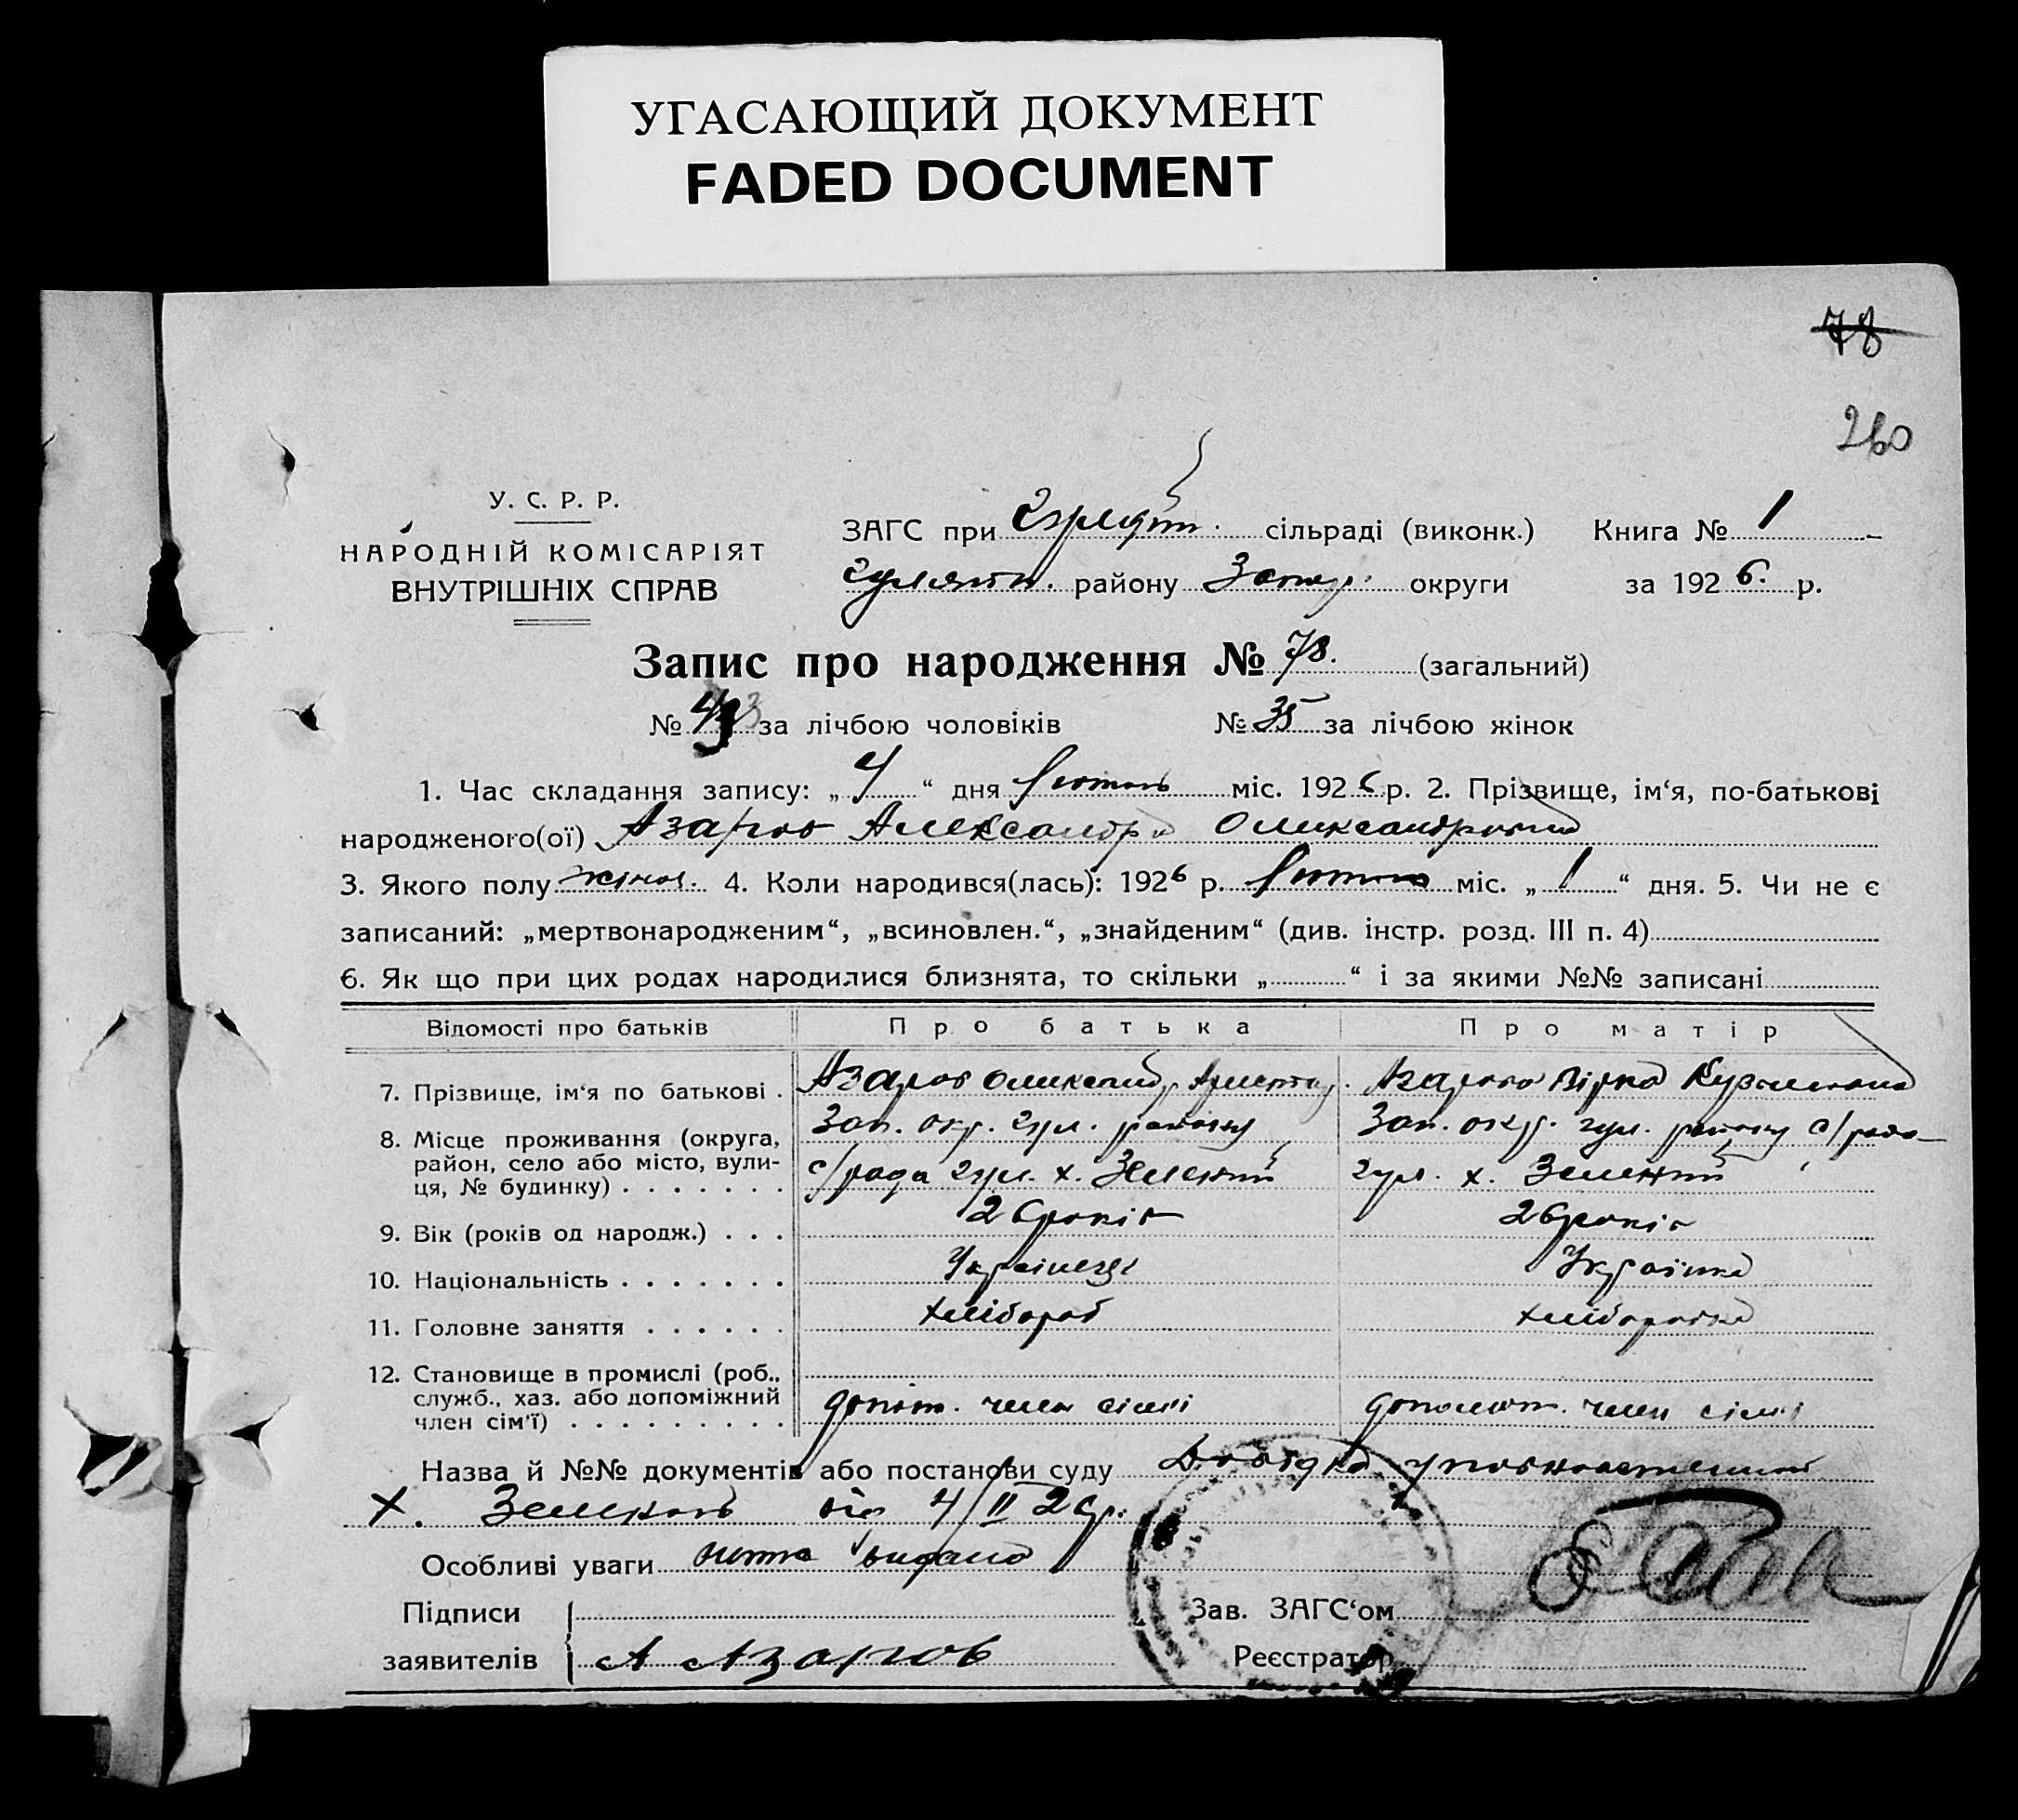 УГАСАЮЩИЙ ДОКУМЕНТ
FADED DOCUMENT
78
260
У. С. Р. Р.
НАРОДНІЙ КОМІСАРІЯТ
ВНУТРІШНІХ СПРАВ
ЗАГС при сільраді (виконк.) Книга № 1
району Запор. округи за 1926. р.
Запис про народження № 78. (загальний)
№ за лічбою чоловіків № 35 за лічбою жінок
1. Час складання запису: „4“ дня лютого міс. 1926 р. 2. Прізвище, ім‘я, по-батькові
народженого(ої) Азаров Александра Олександровна
3. Якого полу жіноч. 4. Коли народився(лась): 1926 р. лютого міс. „1“ дня. 5. Чи не є
записаний: „мертвонародженим“, „всиновлен.“, „знайденим“ (див. інстр. розд. III п. 4)
6. Як що при цих родах народилися близнята, то скільки „ “ і за якими №№ записані
Відомості про батьків Про батька Про матір
7. Прізвище, ім‘я по батькові . Азаров Олександ. Азарова Вірка Кузьмовна
8. Місце проживання (округа, район, село або місто, вулиця, № будинку) . . . . . . . Зап. окр. гул. району Зап. окр. гул. району с/рада
с/рада гул. х. Зелений гул. х. Зелений
9. Вік (років од народж.) . . . 26 років 26 років
10. Національність . . . . . . . Українець Українка
11. Головне заняття . . . . . . хлібороб хліборобка
12. Становище в промислі (роб., служб., хаз. або допоміжний член сім‘ї) . . . . . . . . . допом. член сімї допомот. член сімї
Назва й №№ документів або постанови суду Довідка уповноваженого
х. Зеленого від 4/II 26р.
Особливі уваги видано
Підписи Зав. ЗАГС‘ом
заявителів А Азаров Реєстратор